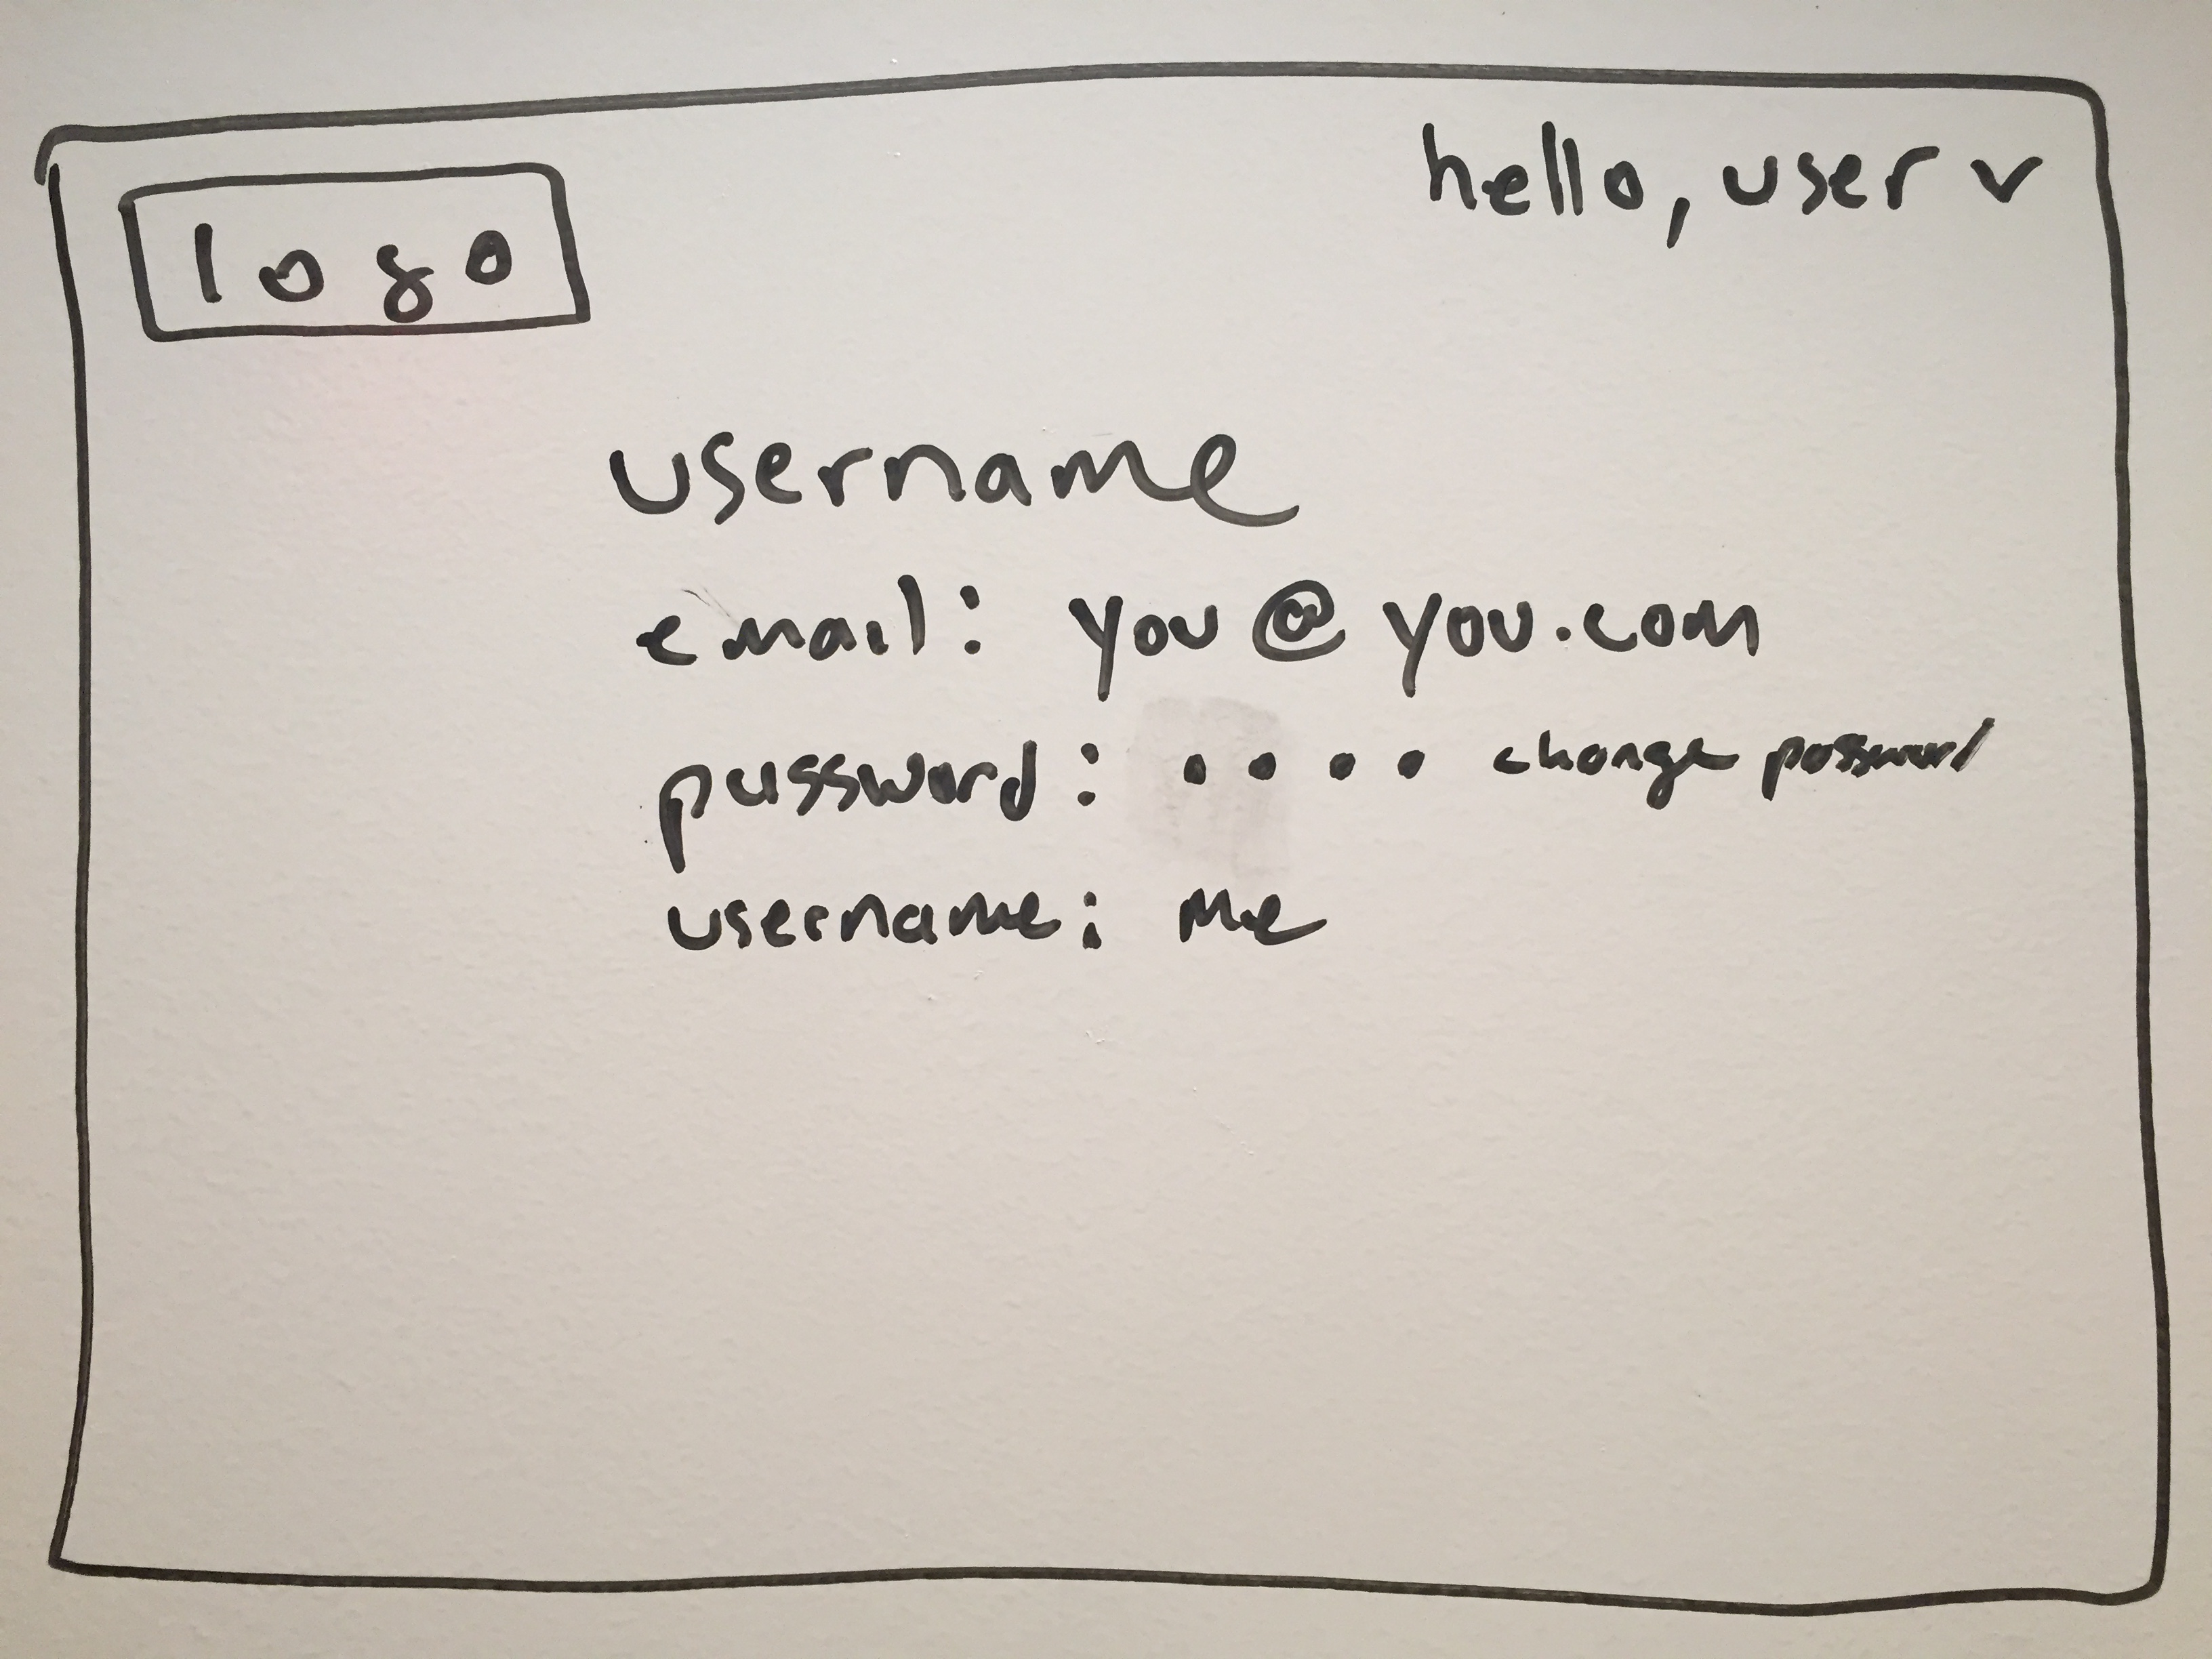 hello, user v
logo
username
email: you@you.com
password: • • • • change password
username: me